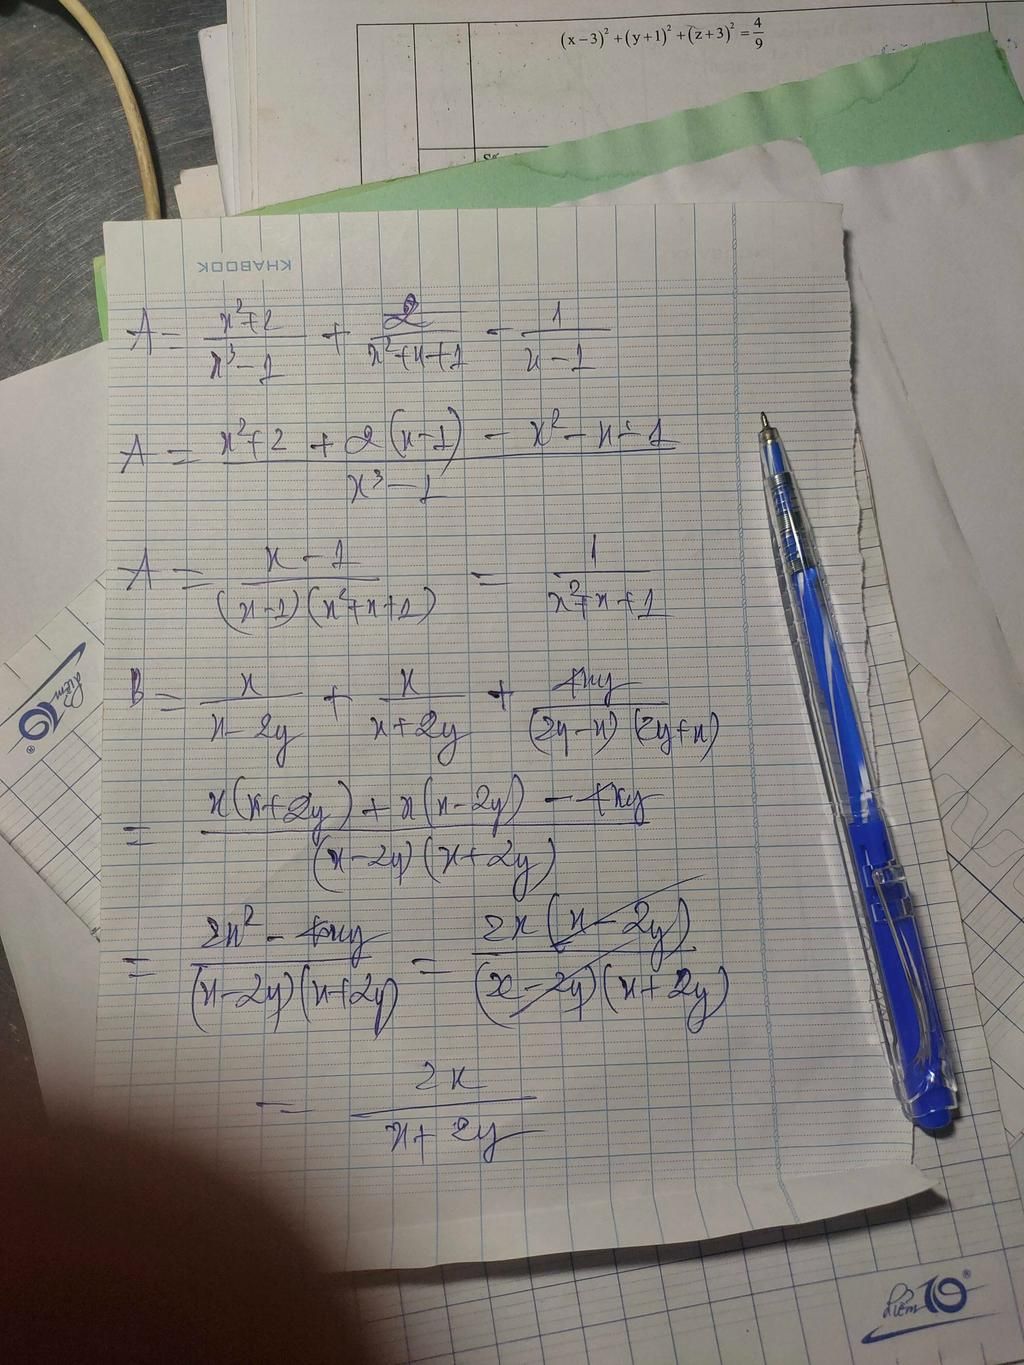 (x − 3)² + (y + 1)² + (z + 3)² = 4/9
KHABOOK
A = (x²+2)/(x³−1) + 2/(x²+x+1) − 1/(x−1)
A = (x²+2 + 2(x−1) − x² − x − 1)/(x³−1)
A = (x−1)/((x−1)(x²+x+1)) = 1/(x²+x+1)
B = x/(x−2y) + x/(x+2y) + 4xy/((2y−x)(2y+x))
= (x(x+2y) + x(x−2y) − 4xy)/((x−2y)(x+2y))
= (2x² − 4xy)/((x−2y)(x+2y)) = (2x(x−2y))/((x−2y)(x+2y))
= 2x/(x+2y)
Điểm 10®
Điểm 10®